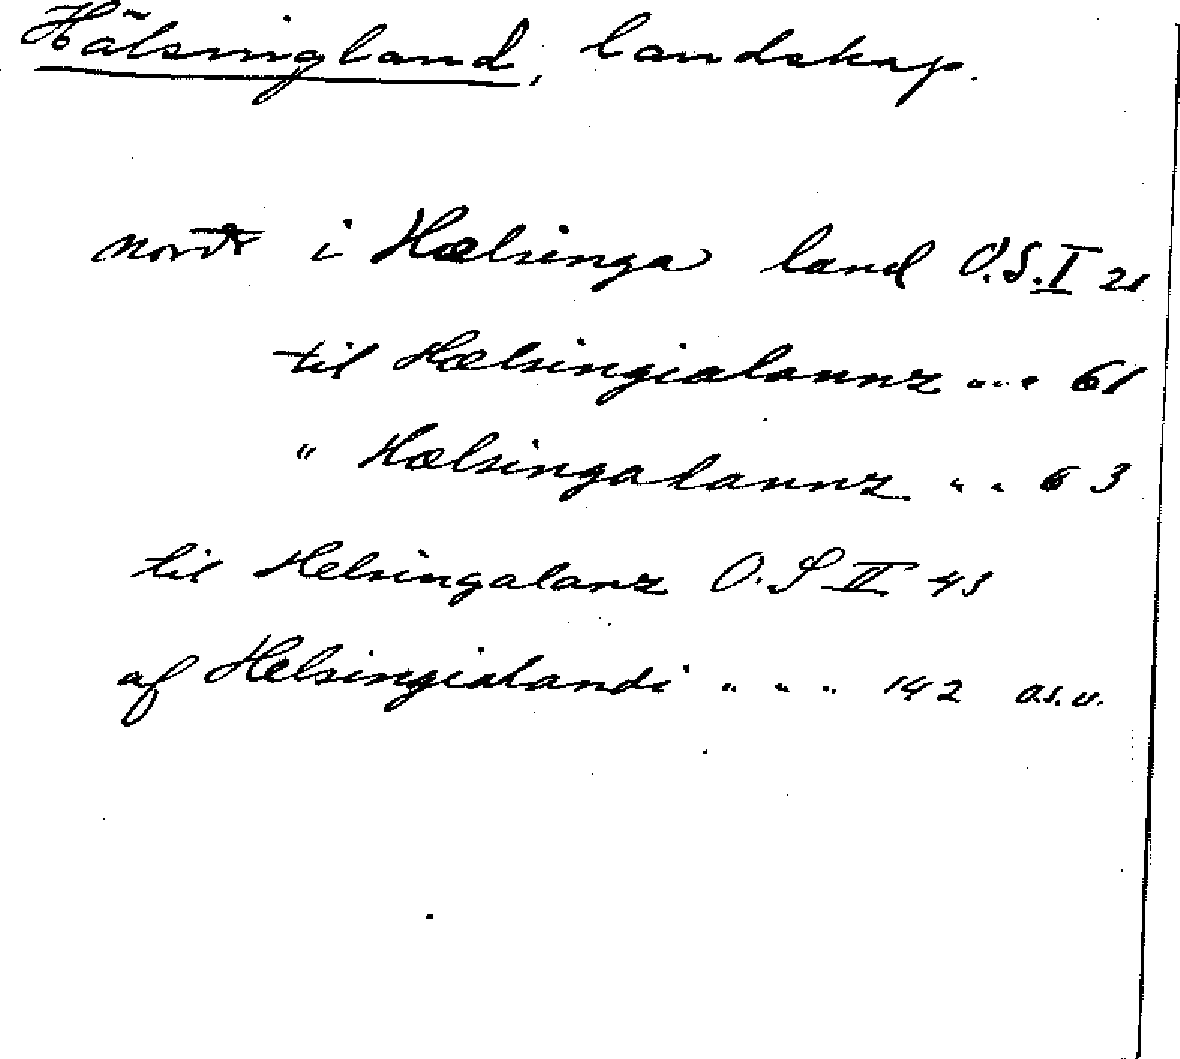 Hälsingland, landskap.
nordr i Hælsinga land O.S. I 21
til Hælsingialannz „ „ 61
" Hælsingalannz „ „ 63
til Helsingalanz O.S II 45
af Helsingialandi „ „ „ 142 a.s.v.